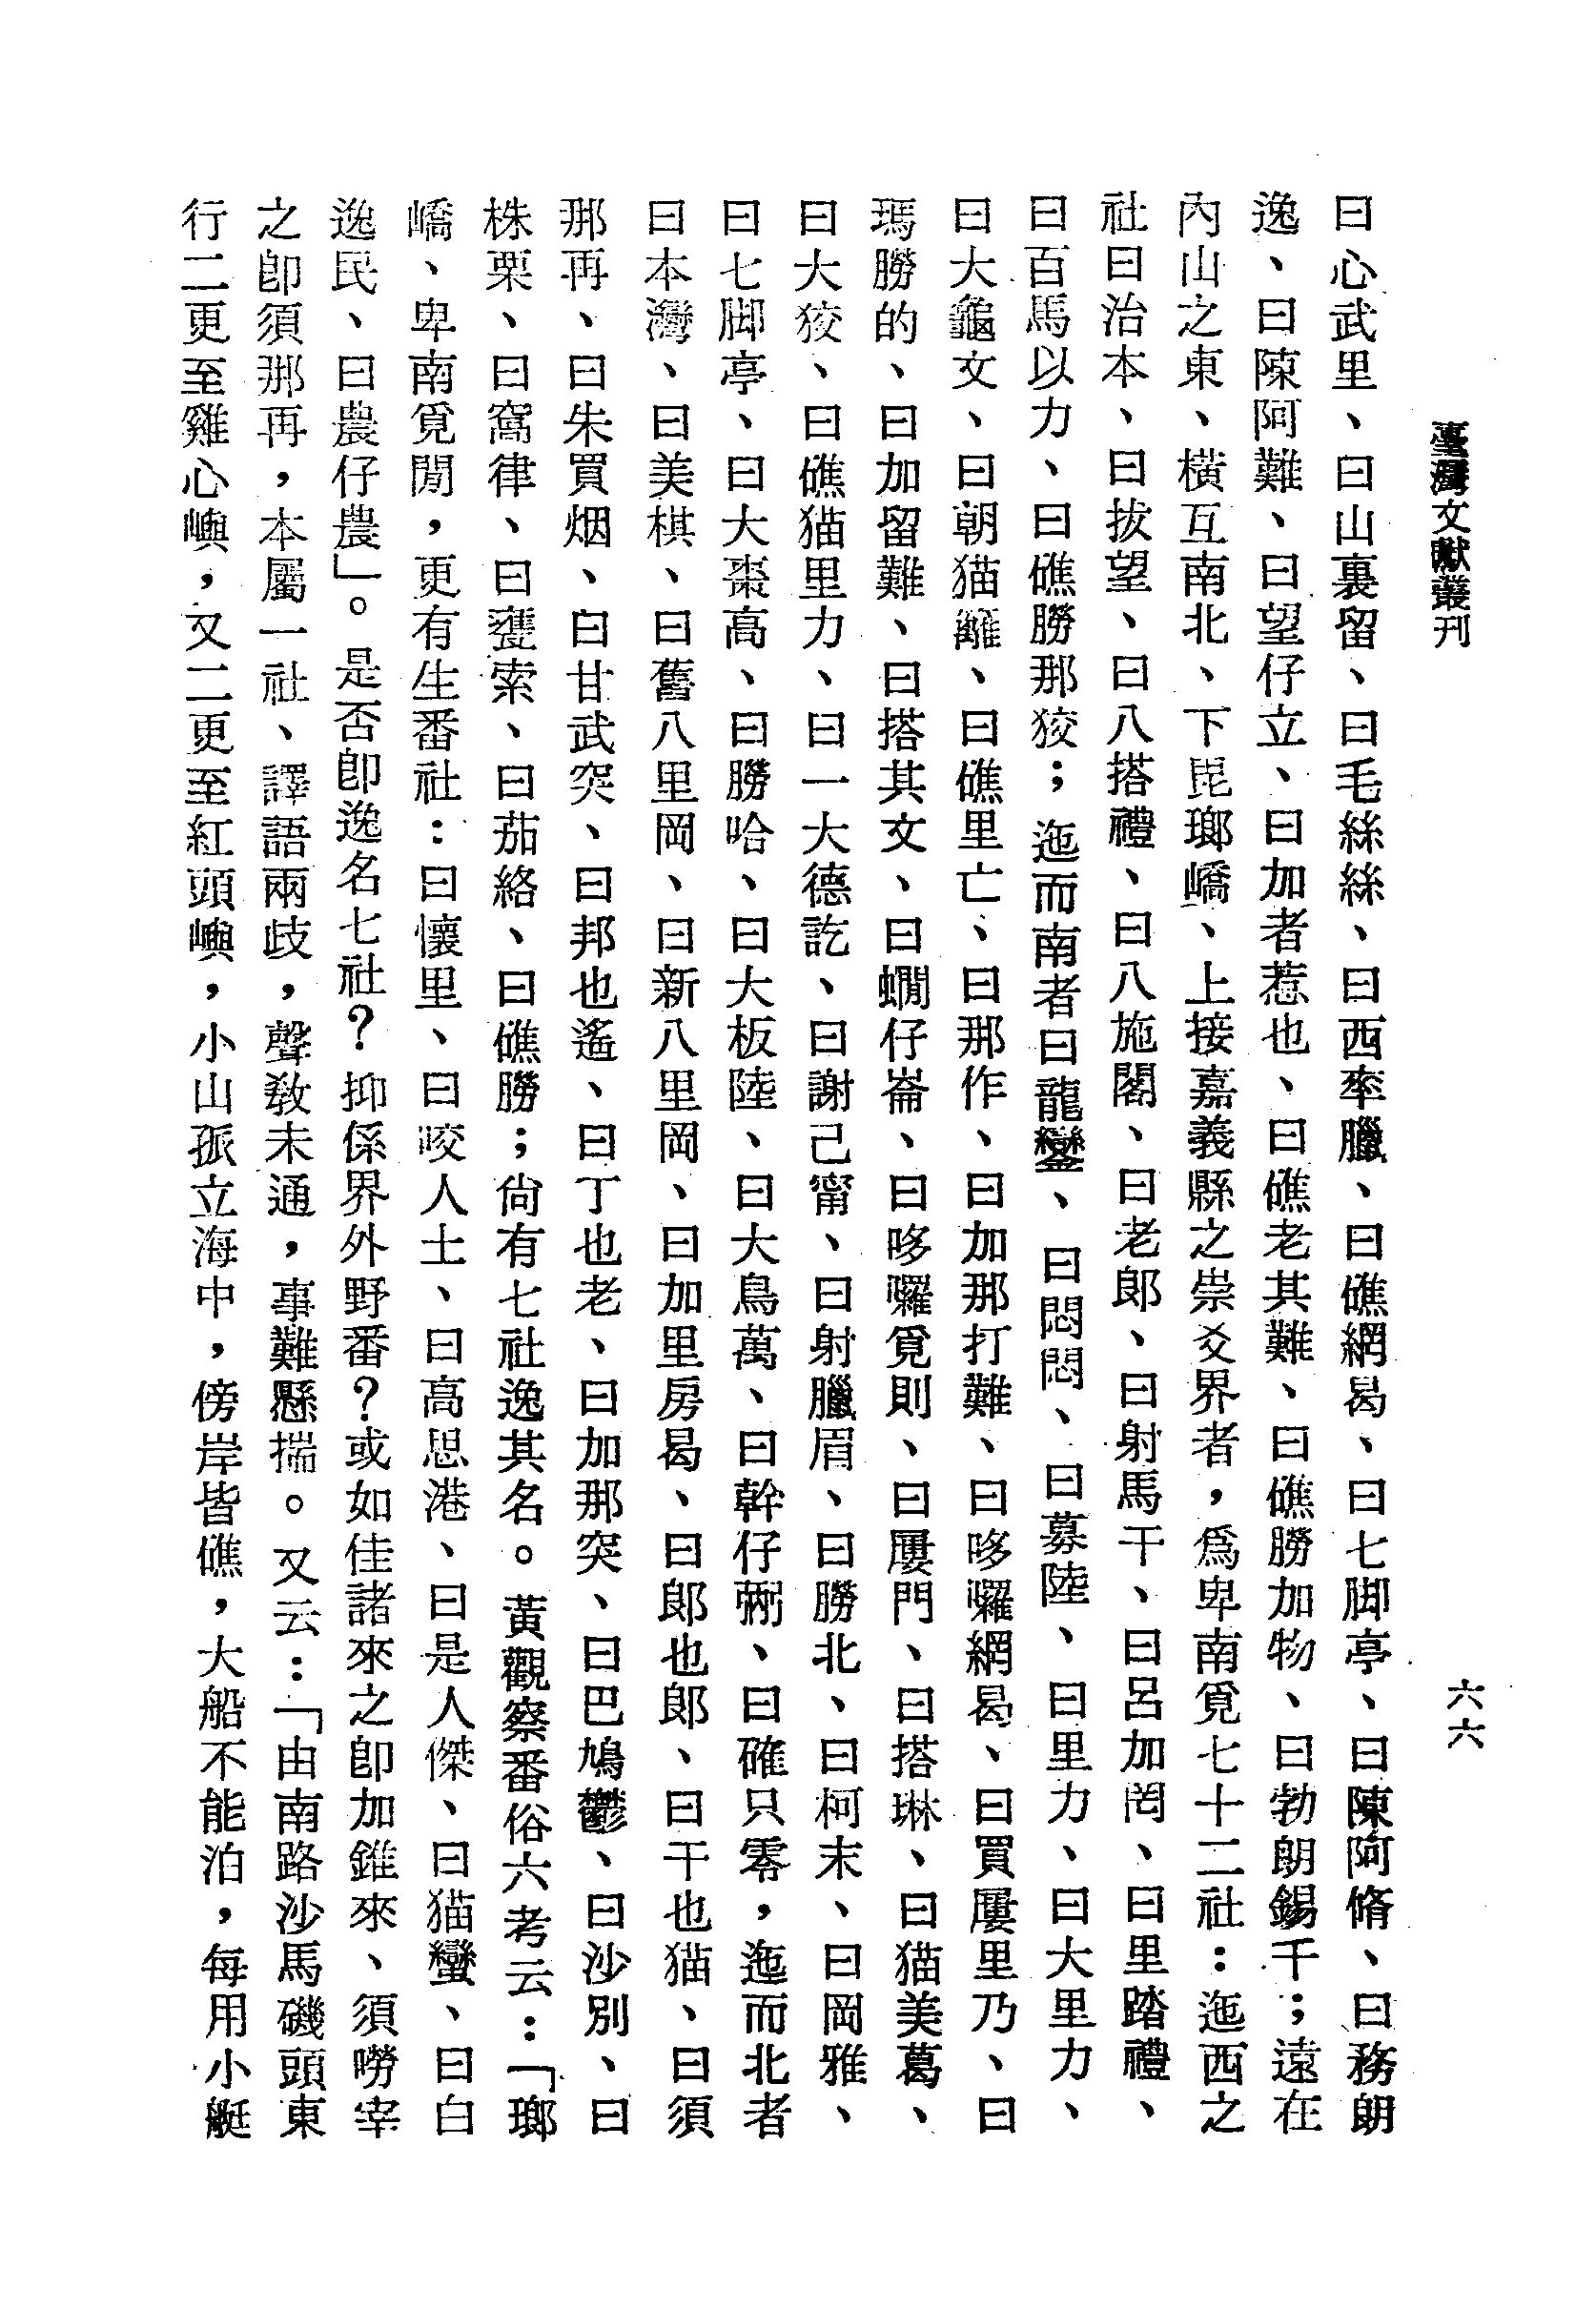 臺灣文獻叢刊
六六
曰心武里、曰山裏留、曰毛絲絲、曰西率臘、曰礁網曷、曰七脚亭、曰陳阿脩、曰務朗
逸、曰陳阿難、曰望仔立、曰加者惹也、曰礁老其難、曰礁勝加物、曰勃朗錫干；遠在
內山之東、橫亙南北、下毘瑯嶠、上接嘉義縣之崇爻界者，爲卑南覓七十二社：迤西之
社曰治本、曰拔望、曰八搭禮、曰八施閣、曰老郎、曰射馬干、曰呂加罔、曰里踏禮、
曰百馬以力、曰礁勝那狡；迤而南者曰龍鑾、曰悶悶、曰募陸、曰里力、曰大里力、
曰大龜文、曰朝猫籬、曰礁里亡、曰那作、曰加那打難、曰哆囉網曷、曰買屢里乃、曰
瑪勝的、曰加留難、曰搭其文、曰蠮仔崙、曰哆囉覓則、曰屢門、曰搭琳、曰猫美葛、
曰大狡、曰礁猫里力、曰一大德訖、曰謝己甯、曰射臘眉、曰勝北、曰柯末、曰岡雅、
曰七脚亭、曰大棗高、曰勝哈、曰大板陸、曰大鳥萬、曰幹仔弻、曰確只零，迤而北者
曰本灣、曰美棋、曰舊八里岡、曰新八里岡、曰加里房曷、曰郎也郎、曰干也猫、曰須
那再、曰朱買烟、曰甘武突、曰邦也遙、曰丁也老、曰加那突、曰巴鳩鬱、曰沙別、曰
株栗、曰窩律、曰甕索、曰茄絡、曰礁勝；尙有七社逸其名。黃觀察番俗六考云：「瑯
嶠、卑南覓閒，更有生番社：曰懷里、曰咬人土、曰高思港、曰是人傑、曰猫蠻、曰白
逸民、曰農仔農」。是否卽逸名七社？抑係界外野番？或如佳諸來之卽加錐來、須嘮宰
之卽須那再，本屬一社、譯語兩歧，聲敎未通，事難懸揣。又云：「由南路沙馬磯頭東
行二更至雞心嶼，又二更至紅頭嶼，小山孤立海中，傍岸皆礁，大船不能泊，每用小艇